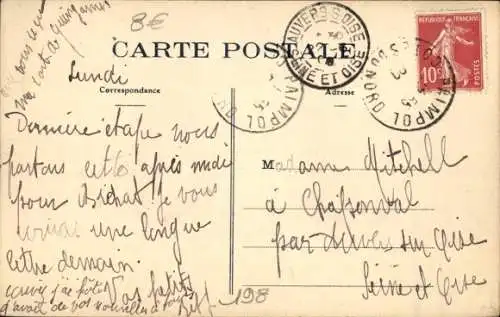 8€
avez vous reçu
CARTE POSTALE
Correspondance
Adresse
RÉPUBLIQUE FRANÇAISE
10c
POSTES
AUVERS S OISE
SEINE ET OISE
PAIMPOL
PAIMPOL
Lundi
Dernière étape nous
partons cette après midi
pour Bréhat je vous
une longue
lettre demain.
Vos petits
écrivez j'ai hâte
d'avoir de vos nouvelles à tous
198
Madame Mitchell
à Chaponval
par Auvers sur Oise
Seine et Oise